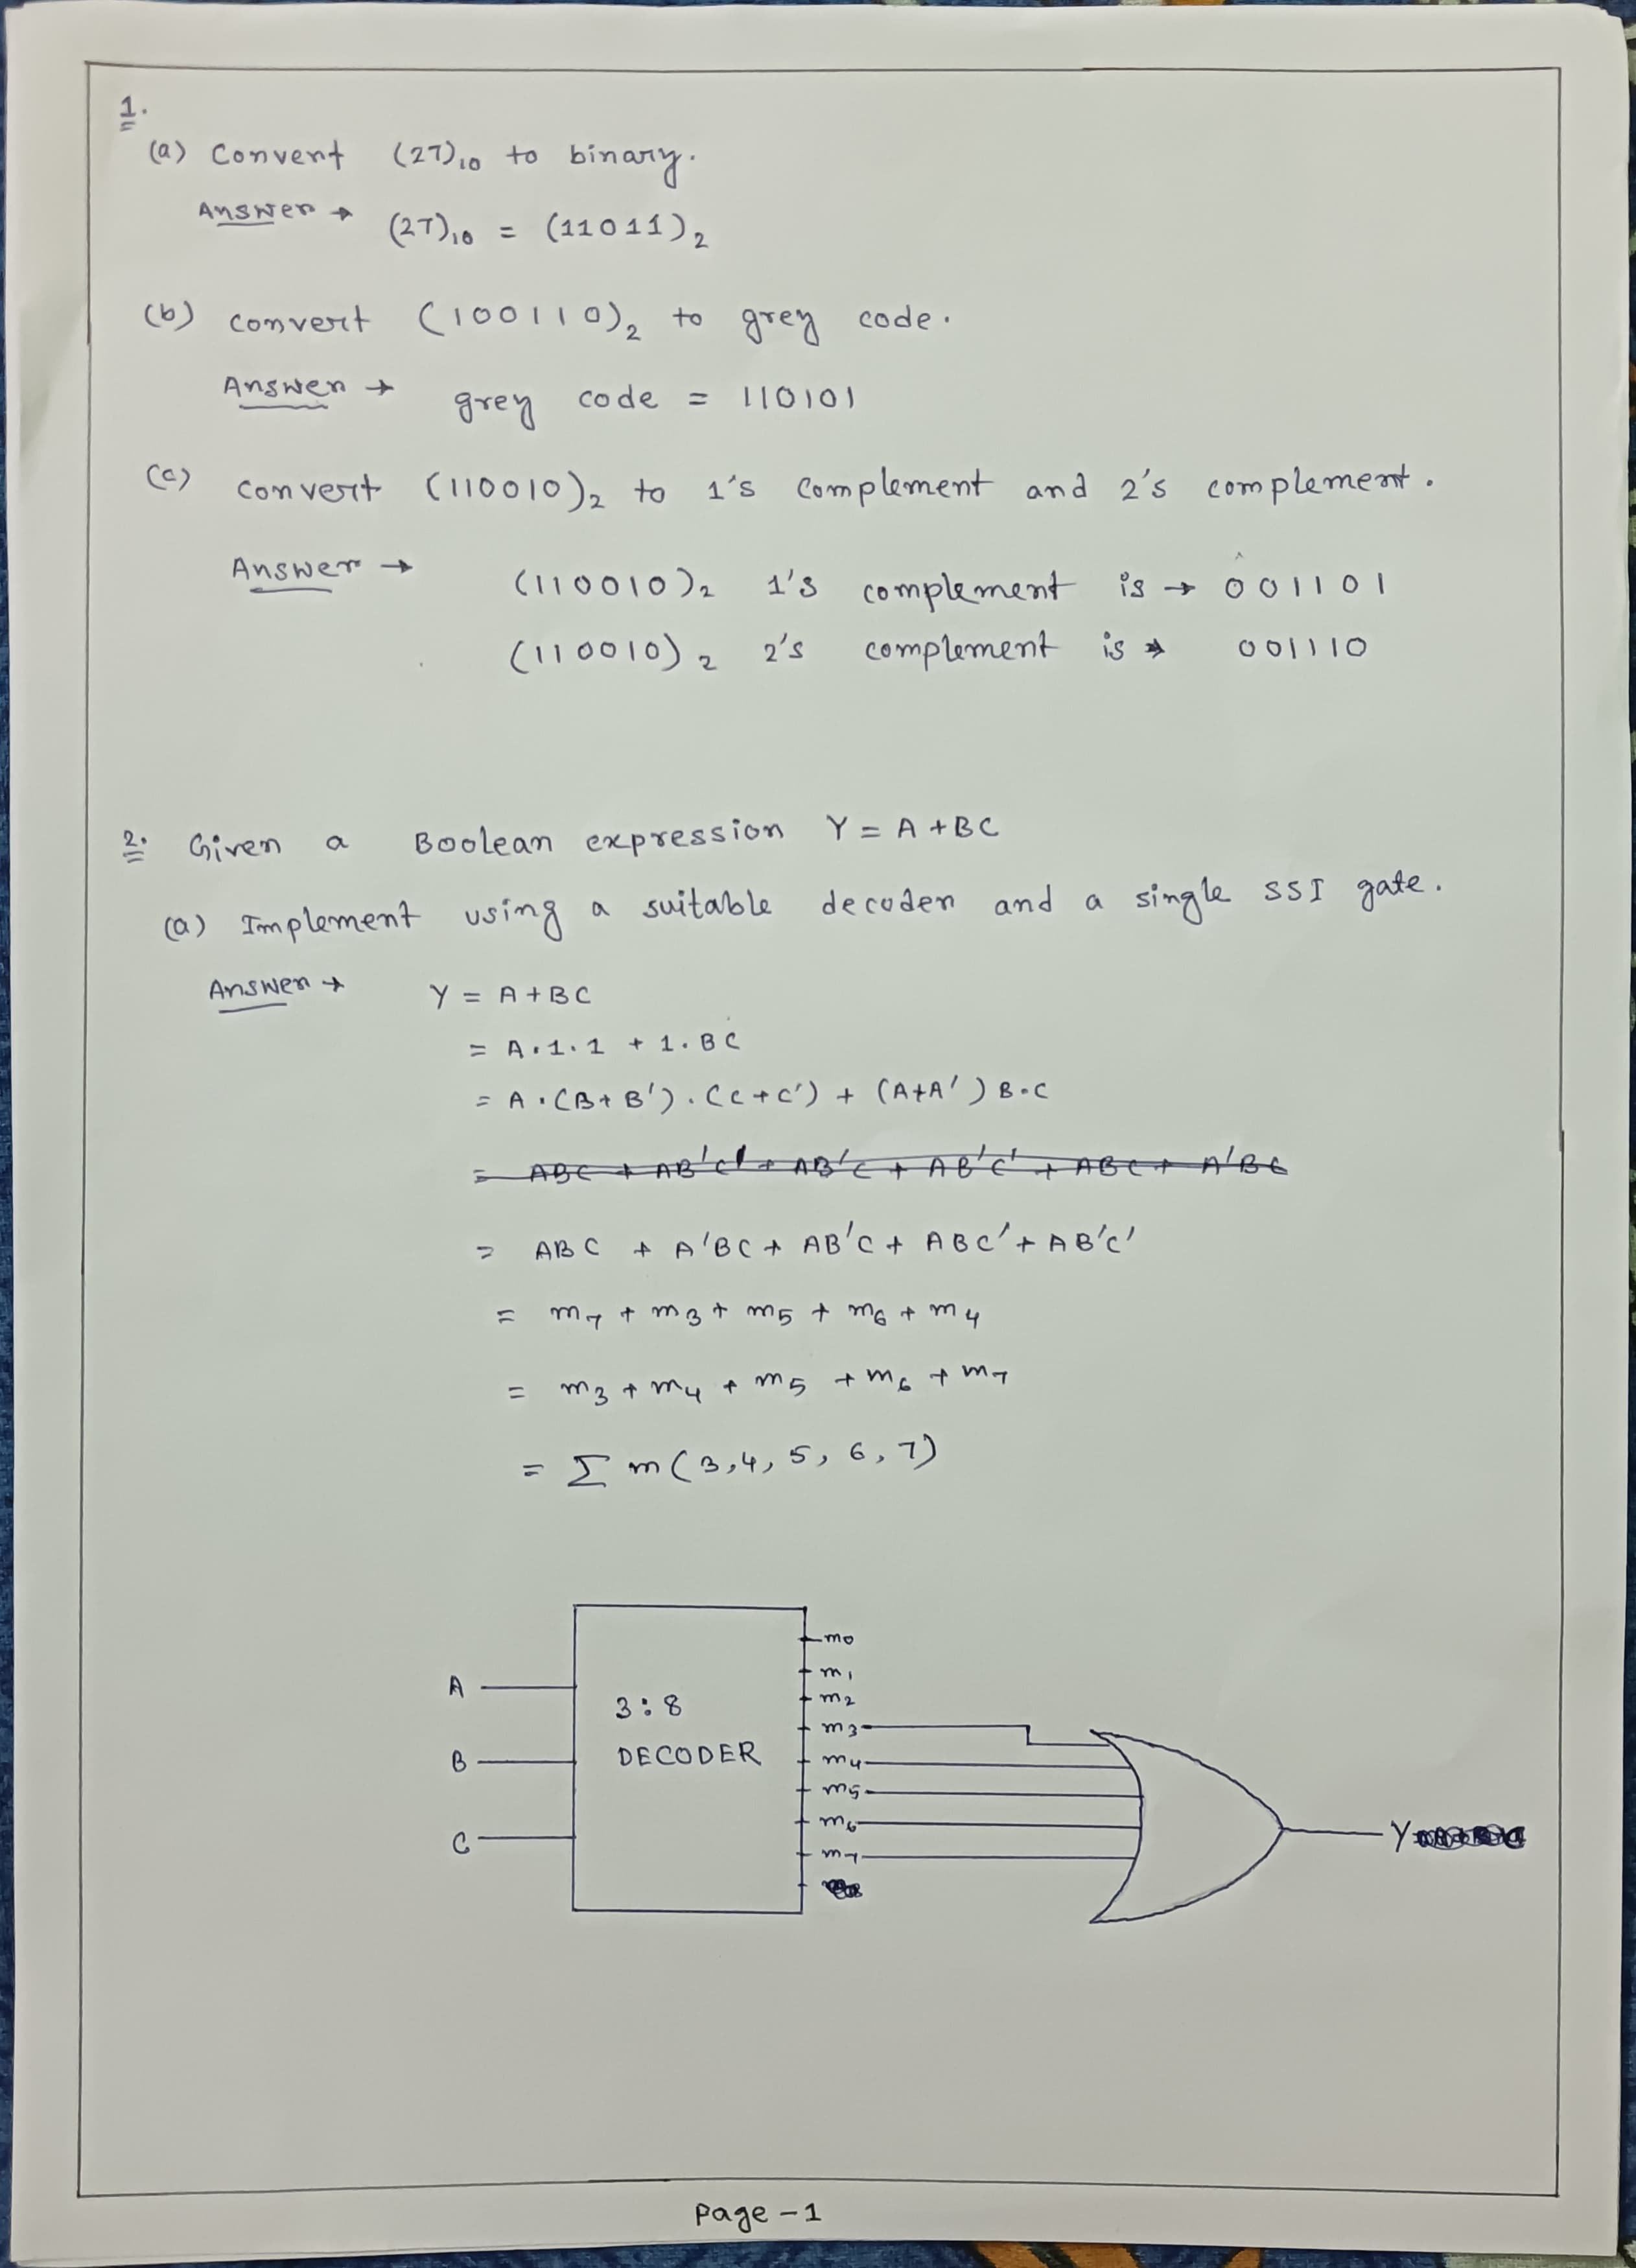 1.
(a) Convert (27)₁₀ to binary.
Answer → (27)₁₀ = (11011)₂
(b) convert (100110)₂ to grey code.
Answer → grey code = 110101
(c) convert (110010)₂ to 1's complement and 2's complement.
Answer → (110010)₂ 1's complement is → 001101
(110010)₂ 2's complement is → 001110
2. Given a Boolean expression Y = A + BC
(a) Implement using a suitable decoder and a single SSI gate.
Answer → Y = A + BC
= A.1.1 + 1.BC
= A.(B+B').(C+C') + (A+A')B.C
= ABC + AB'C' + AB'C + AB'C' + ABC + A'BC
= ABC + A'BC + AB'C + ABC' + AB'C'
= m₇ + m₃ + m₅ + m₆ + m₄
= m₃ + m₄ + m₅ + m₆ + m₇
= Σ m(3,4,5,6,7)
A
B
C
3:8
DECODER
m0
m1
m2
m3
m4
m5
m6
m7
Y
Page - 1